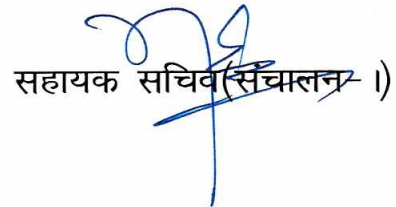 सहायक सचिव(संचालन- ।)